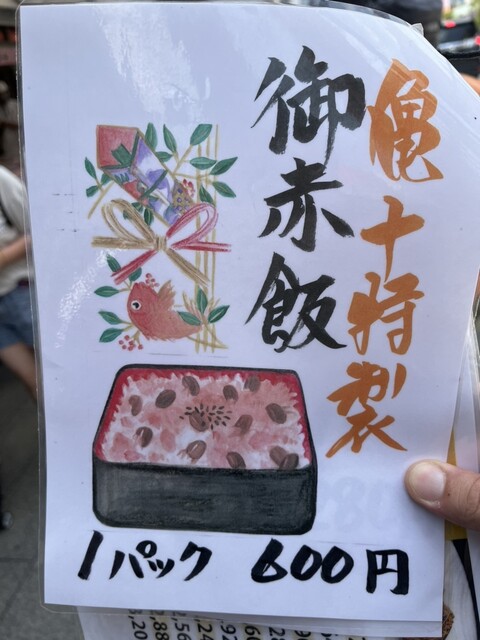 亀十特製
御赤飯
1パック 600円